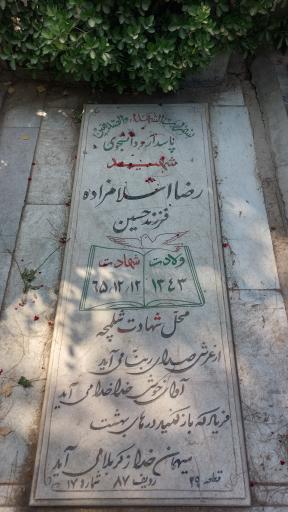 پاسدار و دانشجوی
شهید
رضا اعلامزاده
فرزند حسین
ولادت شهادت
۱۳۴۳ ۶۵،۱۲،۱۲
محل شهادت شلمچه
از عرش صدای ربنا می آید
آوای خوش خدا خدا می آید
فریاد که باز کنید درهای بهشت
میهمان خدا ز کربلا می آید
قطعه ۲۹ ردیف ۸۷ شماره ۱۷